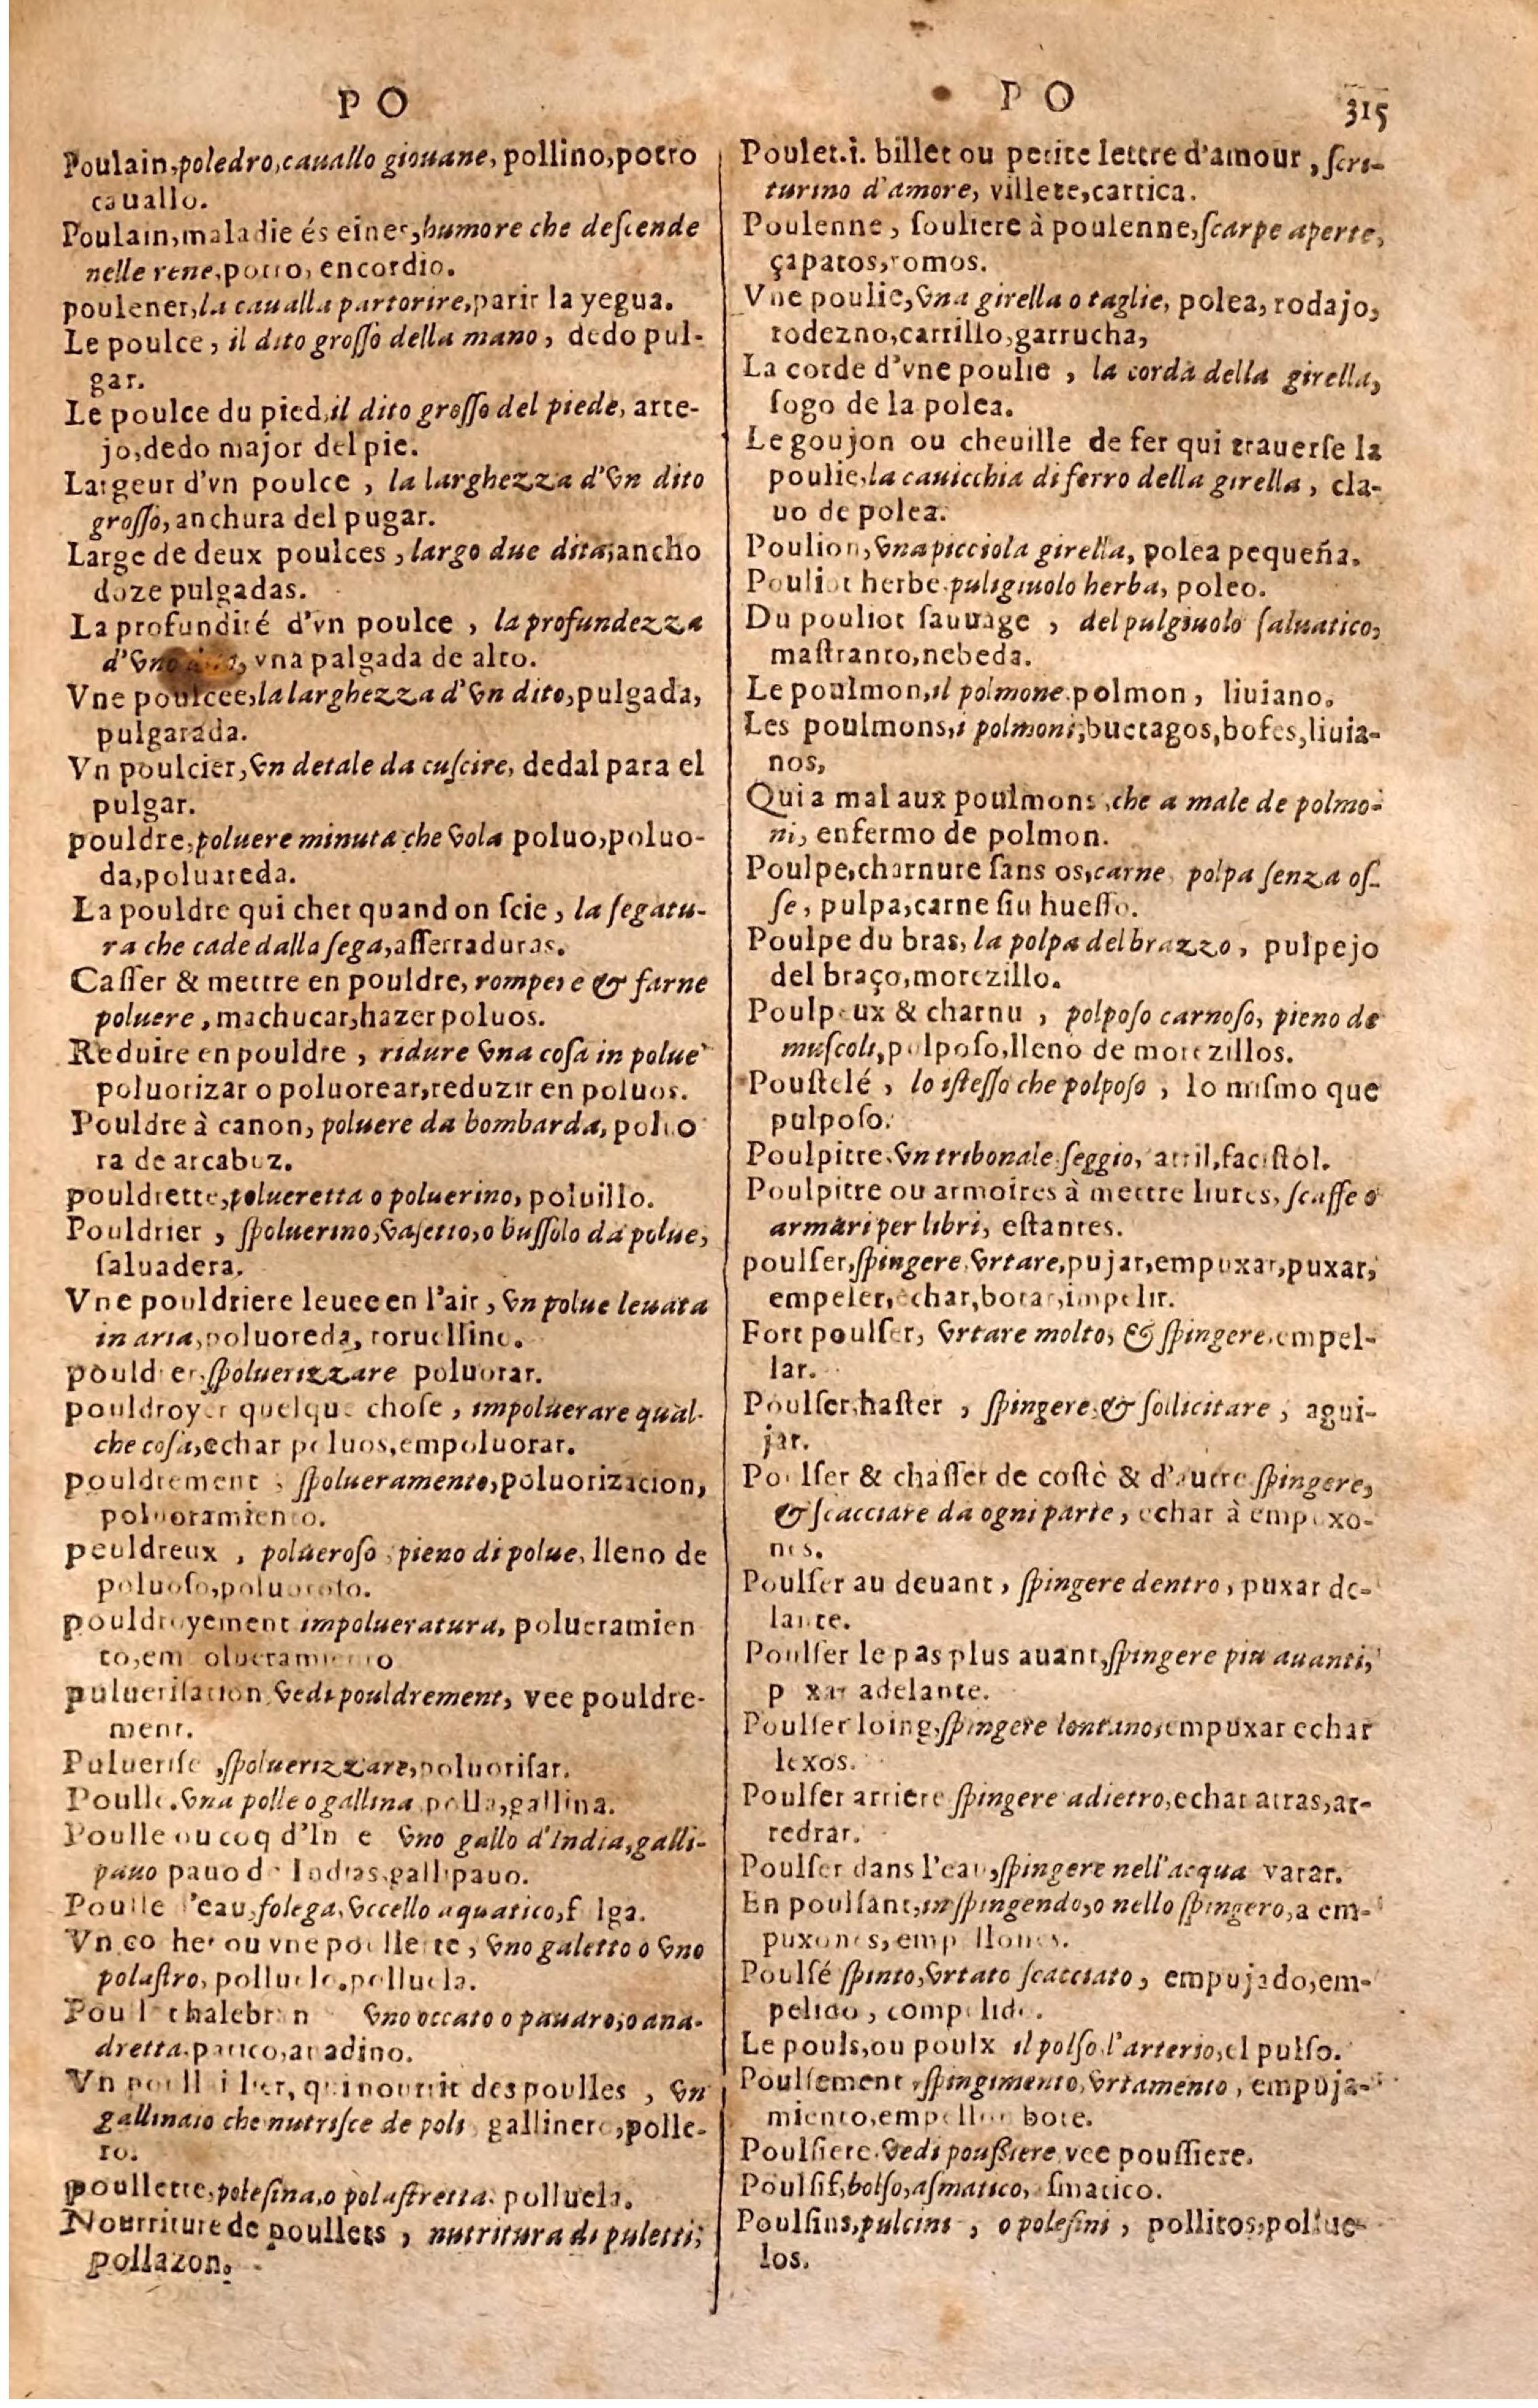 P O
Poulain, poledro, cauallo giouane, pollino, potro
cauallo.
Poulain, maladie és eines, humore che deſcende
nelle rene, potro, encordio.
poulener, la caualla partorire, parir la yegua.
Le poulce, il dito groſſo della mano, dedo pul-
gar.
Le poulce du pied, il dito groſſo del piede, arte-
jo, dedo major del pie.
Largeur d'vn poulce, la larghezza d'vn dito
groſſo, anchura del pugar.
Large de deux poulces, largo due dita, ancho
doze pulgadas.
La profundité d'vn poulce, la profundezza
d'vno, vna palgada de alto.
Vne poulcee, la larghezza d'vn dito, pulgada,
pulgarada.
Vn poulcier, vn detale da cuſcire, dedal para el
pulgar.
pouldre, poluere minuta che vola poluo, poluo-
da, poluareda.
La pouldre qui chet quand on ſcie, la ſegatu-
ra che cade dalla ſega, aſſerraduras.
Caſſer & mettre en pouldre, rompere & farne
poluere, machucar, hazer poluos.
Reduire en pouldre, ridure vna coſa in polue
poluorizar o poluorear, reduzir en poluos.
Pouldre à canon, poluere da bombarda, poluo
ra de arcabuz.
pouldrette, polueretta o poluerino, poluillo.
Pouldrier, ſpoluerino, vaſetto, o buſſolo da polue,
ſaluadera.
Vne pouldriere leuee en l'air, vn polue leuata
in aria, poluoreda, toruellino.
pouldrer, ſpoluerizzare poluorar.
pouldroyer quelque choſe, impoluerare qual-
che coſa, echar poluos, empoluorar.
pouldrement, ſpolueramento, poluorizacion,
poluoramiento.
peuldreux, polueroſo, pieno di polue, lleno de
poluoſo, poluoroto.
pouldroyement impolueratura, polueramien
to,
puluerisation vedi pouldrement, vee pouldre-
ment.
Puluerise, ſpoluerizzare, poluoriſar.
Poulle. vna polle o gallina polla, gallina.
Poulle ou coq d'In e vno gallo d'India, galli-
pauo pauo de Indias, gallipauo.
Poulle l'eau, folega, vccello aquatico, f lga.
Vn co het ou vne poullette, vno galetto o vno
polaſtro, polluelo, polluela.
Poull chalebran vno occato o pauaro, o ana-
dretta. patico, anadino.
Vn poullailler, qui nourrit des poulles, vn
gallinaio che nutriſce de poli, gallinero, polle-
ro.
poullette, poleſina, o polaſtretta. polluela.
Nourriture de poullets, nutritura di puletti;
pollazon.
P O
315
Poulet. i. billet ou petite lettre d'amour, ſcri-
turino d'amore, villete, cartica.
Poulenne, ſouliere à poulenne, ſcarpe aperte,
çapatos, romos.
Vne poulie, vna girella o taglie, polea, rodajo,
rodezno, carrillo, garrucha,
La corde d'vne poulie, la corda della girella,
ſogo de la polea.
Le goujon ou cheuille de fer qui trauerſe la
poulie, la cauicchia di ferro della girella, cla-
uo de polea.
Poulion, vna picciola girella, polea pequeña.
Pouliot herbe. puligiuolo herba, poleo.
Du pouliot ſauuage, del pulgiuolo ſaluatico,
maſtranto, nebeda.
Le poulmon, il polmone. polmon, liuiano.
Les poulmons, i polmoni, buetagos, bofes, liuia-
nos,
Qui a mal aux poulmons, che a male de polmo-
ni, enfermo de polmon.
Poulpe, charnure ſans os, carne, polpa ſenza oſ-
ſe, pulpa, carne ſiu hueſſo.
Poulpe du bras, la polpa del brazzo, pulpejo
del braço, morezillo.
Poulpeux & charnu, polpoſo carnoſo, pieno de
muſcoli, polpoſo, lleno de morezillos.
Pouſtelé, lo iſteſſo che polpoſo, lo miſmo que
pulpoſo.
Poulpitre. vn tribonale ſeggio, atril, faciſtol.
Poulpitre ou armoires à mettre liures, ſcaffe o
armari per libri, eſtantes.
poulſer, ſpingere, vrtare, pujar, empuxar, puxar,
empeler, echar, botar, impelir.
Fort poulſer, vrtare molto, & ſpingere, empel-
lar.
Poulſer, haſter, ſpingere, & ſollicitare, agui-
jar.
Poulſer & chaſſer de coſté & d'autre ſpingere,
& ſcacciare da ogni parte, echar à empuxo-
nes.
Poulſer au deuant, ſpingere dentro, puxar de-
lante.
Poulſer le pas plus auant, ſpingere piu auanti,
p xar adelante.
Poulſer loing, ſpingere lontano, empuxar echar
lexos.
Poulſer arriere ſpingere adietro, echar atras, ar-
redrar.
Poulſer dans l'eau, ſpingere nell'acqua varar.
En poulſant, in ſpingendo, o nello ſpingero, a em-
puxones, empellones.
Poulſé ſpinto, vrtato ſcacciato, empujado, em-
pelido, compelido.
Le pouls, ou poulx il polſo, l'arterio, el pulſo.
Poulſement, ſpingimento, vrtamento, empuja-
miento, empellon bote.
Poulſiere. vedi pouſſiere, vee pouſſiere.
Poulſif, bolſo, aſmatico, aſmatico.
Poulſins, pulcini, o poleſini, pollitos, pollue-
los.